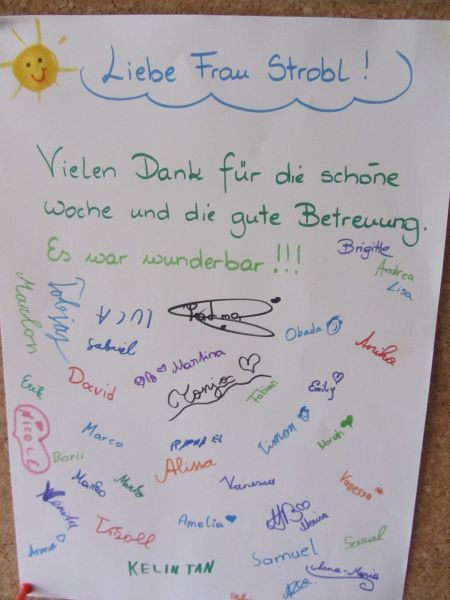 Liebe Frau Strobl!
Vielen Dank für die schöne
woche und die gute Betreuung.
Es war wunderbar!!!
Brigitte
Andrea
Lisa
Marlon
Tobias
LUCA
Fatma
Obada
Anika
Gabriel
Martina
Erik
David
Tonja
Fabian
Emily
NICOLE
Marco
RAPHAEL
Timon
Norah
Boris
Alissa
Marko
Vanessa
Vanessa
Amelia
Samuel
Sarah
KELINTAN
Anna-Maria